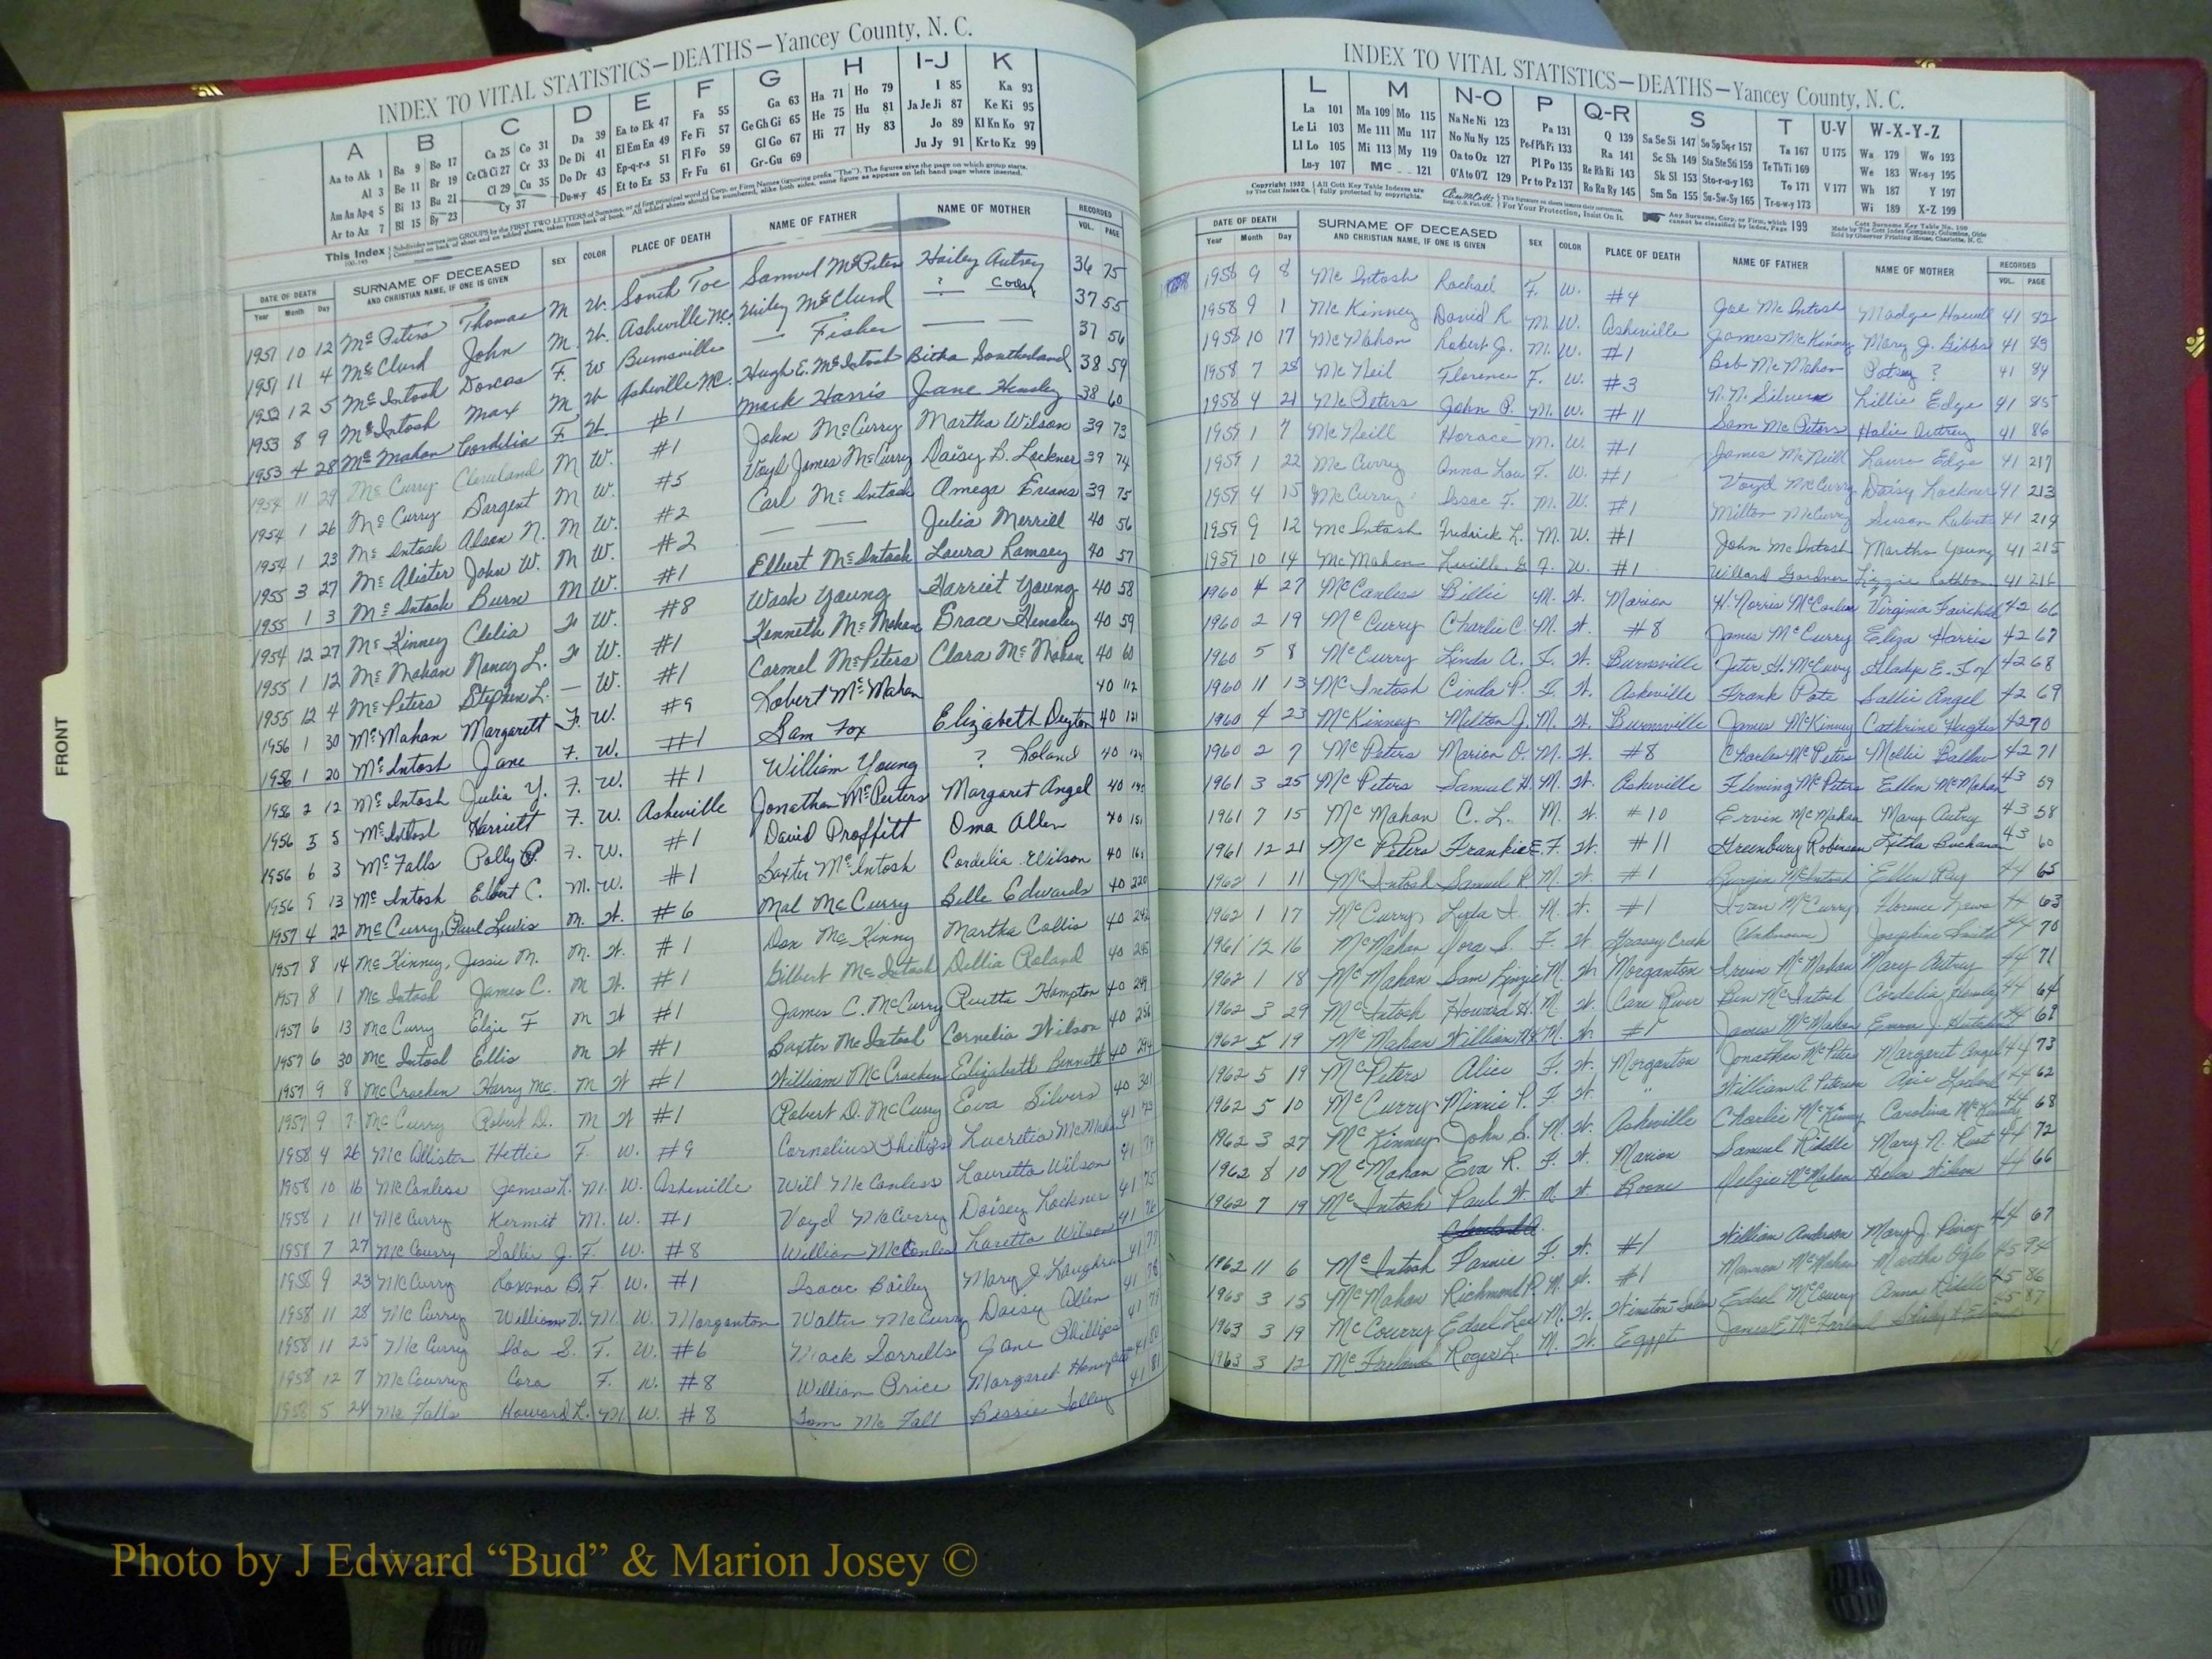 INDEX TO VITAL STATISTICS—DEATHS—Yancey County, N. C.
A B C D E F G H I-J K
Aa to Ak 1 Ba 9 Bo 17 Ca 25 Co 31 Da 39 Ea to Ek 47 Fa 55 Ga 63 Ha 71 Ho 79 I 85 Ka 93
Al 3 Be 11 Br 19 Ce Ch Ci 27 Cr 33 De Di 41 El Em En 49 Fe Fi 57 Ge Gh Gi 65 He 75 Hu 81 Ja Je Ji 87 Ke Ki 95
Am An Ap-q 5 Bi 13 Bu 21 Cl 29 Cu 35 Do Dr 43 Ep-q-r-s 51 Fl Fo 59 Gl Go 67 Hi 77 Hy 83 Jo 89 Kl Kn Ko 97
Ar to Az 7 Bl 15 By 23 Cy 37 Du-w-y 45 Et to Ez 53 Fr Fu 61 Gr-Gu 69 Ju Jy 91 Kr to Kz 99
This Index
DATE OF DEATH SURNAME OF DECEASED AND CHRISTIAN NAME, IF ONE IS GIVEN SEX COLOR PLACE OF DEATH NAME OF FATHER NAME OF MOTHER RECORDED
Year Month Day VOL. PAGE
1951 10 12 McPeters Thomas M W. South Toe Samuel McPeters Hailey Autrey 36 75
1951 11 4 McClurd John M. W. Asheville NC. McClurd ? 37 55
1952 12 5 McIntosh Dorcas F. W Burnsville — Fisher — — 37 56
1953 8 9 McIntosh Max M W Asheville NC. Hugh E. McIntosh Bitha Southerland 38 59
1953 4 28 McMahan Cordelia F W. #1 Mack Harris Jane Hensley 38 60
1954 11 29 McCurry Cleveland M W. #1 John McCurry Martha Wilson 39 73
1954 1 26 McCurry Sargent M W. #5 Voyd James McCurry Daisy B. Lockner 39 74
1954 1 23 McIntosh Alson N. M W. #2 Carl McIntosh Omega Evans 39 75
1955 3 27 McAlister John W. M W. #2 — — Julia Merrill 40 56
1955 1 3 McIntosh Burn M W. #1 Elbert McIntosh Laura Ramsey 40 57
1954 12 27 McKinney Clelia F W. #8 Wash Young Harriet Young 40 58
1955 1 12 McMahan Nancy L. F W. #1 Kenneth McMahan Grace Hensley 40 59
1955 12 4 McPeters Stephen L. — W. #1 Carmel McPeters Clara McMahan 40 60
1956 1 30 McMahan Margarett F. W. #9 Robert McMahan 40 112
1956 1 20 McIntosh Jane F. W. #1 Sam Fox Elizabeth Deyton 40 121
1956 2 12 McIntosh Julia Y. F. W. #1 William Young ? Roland 40
1956 3 5 McIntosh Harriett F. W. Asheville Jonathan McPeters Margaret Angel 40
1956 6 3 McFalls Polly P. F. W. #1 David Proffitt Oma Allen 40 151
1956 9 13 McIntosh Elbert C. M. W. #1 Baxter McIntosh Cordelia Wilson 40
1957 4 22 McCurry, Paul Lewis M. W. #6 Mal McCurry Belle Edwards 40 220
1957 8 14 McKinney, Jessie M. M. W. #1 Dan McKinny Martha Collis 40 242
1957 8 1 McIntosh James C. M W. #1 Gilbert McIntosh Dellia Roland 40 245
1957 6 13 McCurry Elzie F M W #1 James C. McCurry Ruetta Hampton 40 249
1957 6 30 McIntosh Ellis M W #1 Baxter McIntosh Cornelia Wilson 40 256
1957 9 8 McCracken Harry Mc. M W #1 William McCracken Elizabeth Bennett 40 294
1957 9 7 McCurry Robert D. M W #1 Robert D. McCurry Eva Silvers 40 301
1958 4 26 McAllister Hettie F. W. #9 Cornelius Phillips Lucretia McMahan 41 73
1958 10 16 McCanless James L. M. W. Asheville Will McCanless Louretta Wilson 41 74
1958 1 11 McCurry Kermit M. W. #1 Voyd McCurry Daisey Lockner 41 75
1958 7 27 McCourry Sallie J. F. W. #8 William McCanles Laretta Wilson 41 76
1958 9 23 McCurry Roxana B. F. W. #1 Isaac Bailey Mary J. Laughrun 41 77
1958 11 28 McCurry William D. M. W. Morganton Walter McCurry Daisy Allen 41 78
1958 11 25 McCurry Ida S. F. W. #6 Mack Sorrells Jane Phillips 41 79
1958 12 7 McCourry Cora F. W. #8 William Price Margaret Honeycutt 41 80
1958 5 24 McFalls Howard L. M. W. #8 Tom McFall Bessie Tolley 41 81
FRONT
INDEX TO VITAL STATISTICS—DEATHS—Yancey County, N. C.
L M N-O P Q-R S T U-V W-X-Y-Z
La 101 Ma 109 Mo 115 Na Ne Ni 123 Pa 131 Q 139 Sa Se Si 147 So Sp Sq-r 157 Ta 167 U 175 Wa 179 Wo 193
Le Li 103 Me 111 Mu 117 No Nu Ny 125 Pe-f Ph Pi 133 Ra 141 Sc Sh 149 Sta Ste Sti 159 Te Th Ti 169 We 183 Wr-u-y 195
Ll Lo 105 Mi 113 My 119 Oa to Oz 127 Pl Po 135 Re Rh Ri 143 Sk Sl 153 Sto-r-u-y 163 To 171 V 177 Wh 187 Y 197
Lu-y 107 Mc 121 O'A to O'Z 129 Pr to Pz 137 Ro Ru Ry 145 Sm Sn 155 Su-Sw-Sy 165 Tr-u-w-y 173 Wi 189 X-Z 199
DATE OF DEATH SURNAME OF DECEASED AND CHRISTIAN NAME, IF ONE IS GIVEN SEX COLOR PLACE OF DEATH NAME OF FATHER NAME OF MOTHER RECORDED
Year Month Day VOL. PAGE
1958 9 8 McIntosh Rachael F. W. #4 Joe McIntosh Madge Howell 41 82
1958 9 1 McKinney David R M. W. Asheville James McKinney Mary J. Gibbs 41 83
1958 10 17 McMahan Robert J. M. W. #1 Bob McMahan Patsey ? 41 84
1958 7 28 McNeil Florence F. W. #3 N. N. Silvers Lillie Edge 41 85
1958 4 21 McPeters John P. M. W. #11 Sam McPeters Halie Autrey 41 86
1959 1 7 McNeill Horace M. W. #1 James McNeill Laura Edge 41 217
1959 1 22 McCurry Anna Lou F. W. #1 Voyd McCurry Daisy Lockner 41 213
1959 4 15 McCurry Isaac F. M. W. #1 Milton McCurry Susan Roberts 41 214
1959 9 12 McIntosh Fredrick L. M. W. #1 John McIntosh Martha Young 41 215
1959 10 14 McMahan Lucille G F. W. #1 Willard Gardner Lizzie Rathbon 41 216
1960 4 27 McCanless Billie M. W. Marion H. Norris McCanless Virginia Fairchild 42 66
1960 2 19 McCurry Charlie C. M. W. #8 James McCurry Eliza Harris 42 67
1960 5 8 McCurry Linda A. F. W. Burnsville Jeter H. McCurry Gladys E. Fox 42 68
1960 11 13 McIntosh Cinda P. F. W. Asheville Frank Pate Sallie Angel 42 69
1960 4 23 McKinney Milton J. M. W. Burnsville James McKinney Cathrine Hughes 42 70
1960 2 7 McPeters Marion O. M. W. #8 Charles McPeters Mollie Ballew 42 71
1961 3 25 McPeters Samuel H. M. W. Asheville Fleming McPeters Ellen McMahan 43 59
1961 7 15 McMahan C. L. M. W. #10 Ervin McMahan Mary Autry 43 58
1961 12 21 McPeters Frankie E. F. W. #11 Greenbury Robinson Letha Buchanan 43 60
1962 1 11 McIntosh Samuel R. M. W. #1 Burgin McIntosh Ellen Ray 44 65
1962 1 17 McCurry M. W. #1 McCurry Florence 44 63
1961 12 16 McMahan Dora S. F. W. Grassy Creek (Unknown) Josephine Smith 44 70
1962 1 18 McMahan Sam M. W. Morganton Irvin McMahan Mary Autrey 44 71
1962 3 29 McIntosh Howard H. M. W. Cane River Ben McIntosh Cordelia Hensley 44 64
1962 5 19 McMahan William M. W. #1 James McMahan Emma J. 44 69
1962 5 19 McPeters Alice F. W. Morganton Jonathan McPeters Margaret Angel 44 73
1962 5 10 McCurry Minnie P. F W. " William A Peterson 44 62
1962 3 27 McKinney John S. M. W. Asheville Charlie McKinney Carolina McKinney 44 68
1962 8 10 McMahan Eva R. F. W. Marion Samuel Riddle Mary N. Rust 44 72
1962 7 19 McIntosh Paul W. M. W Boone McMahan Helen Wilson 44 66
1962 11 6 McIntosh Fannie F. W. #1 William Anderson Mary J. 44 67
1963 3 15 McMahan Richmond P. M. W. #1 McMahan Martha 45 94
1963 3 19 McCourry Edsel Lee M. W. Winston-Salem Edsel McCourry Anna Riddle 45 86
1963 3 12 McFarland Roger L. M. W. Egypt James E McFarland 45 87
Photo by J Edward “Bud” & Marion Josey ©